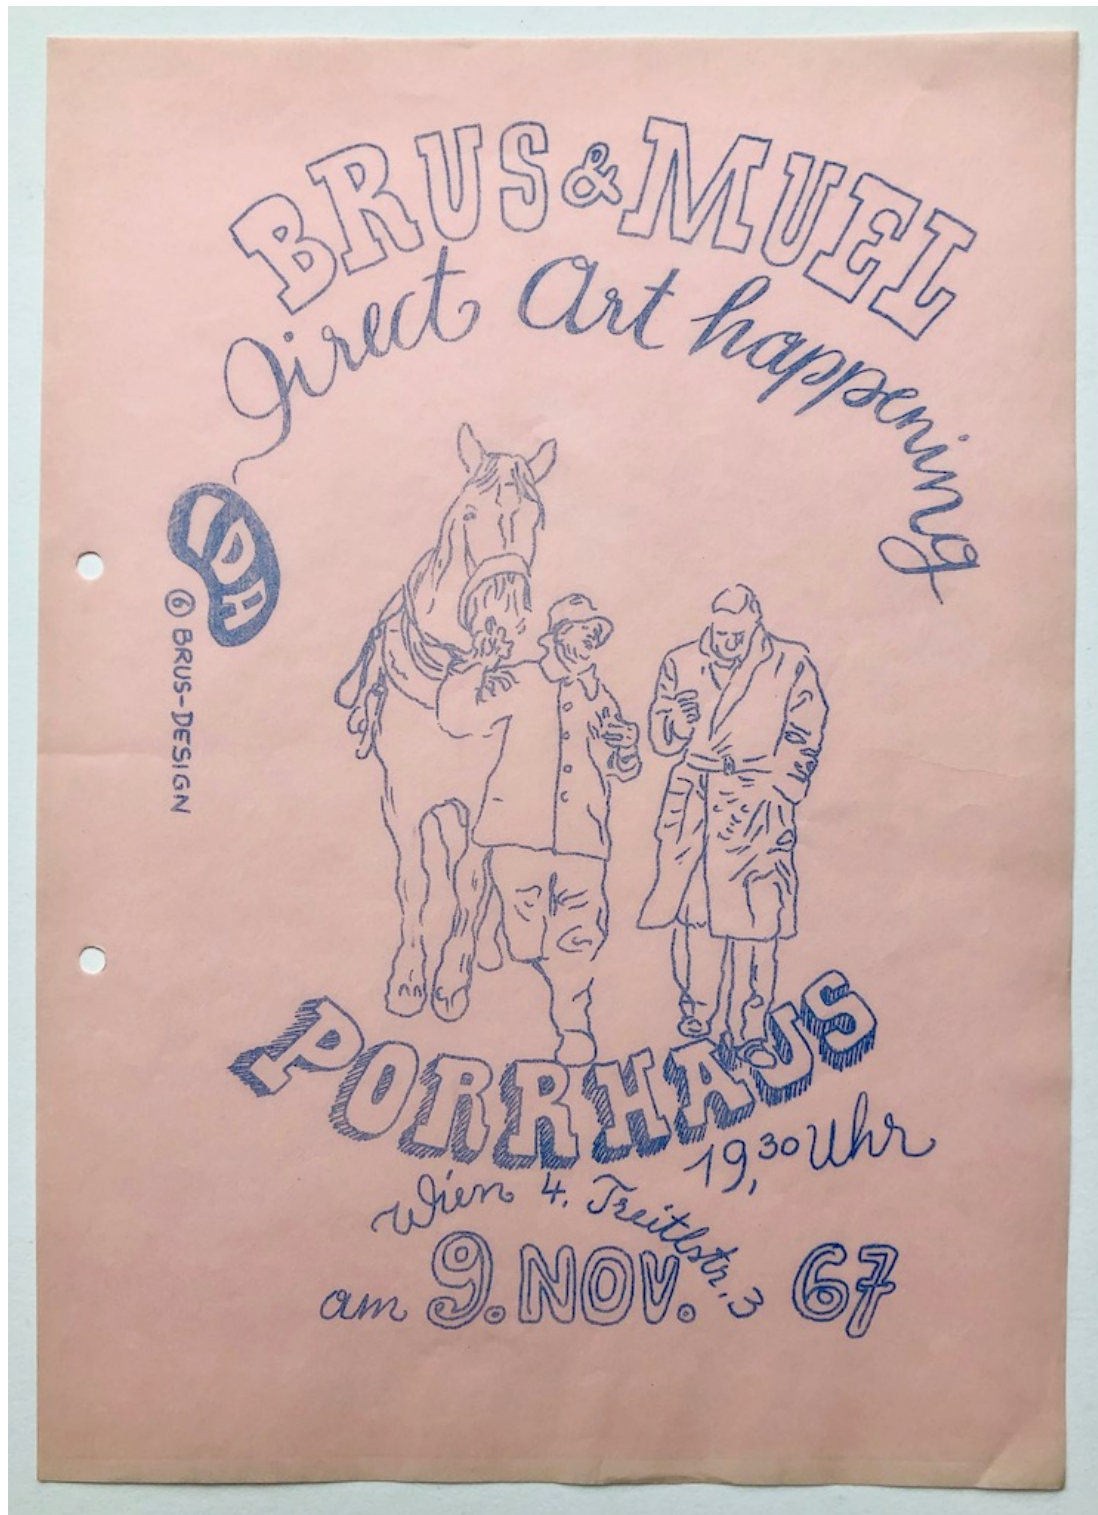 BRUS & MUEL
Direct Art happening
IDA
© BRUS-DESIGN
PORRHAUS
19,30 Uhr
Wien 4. Treitlstr. 3
am 9. NOV. 67